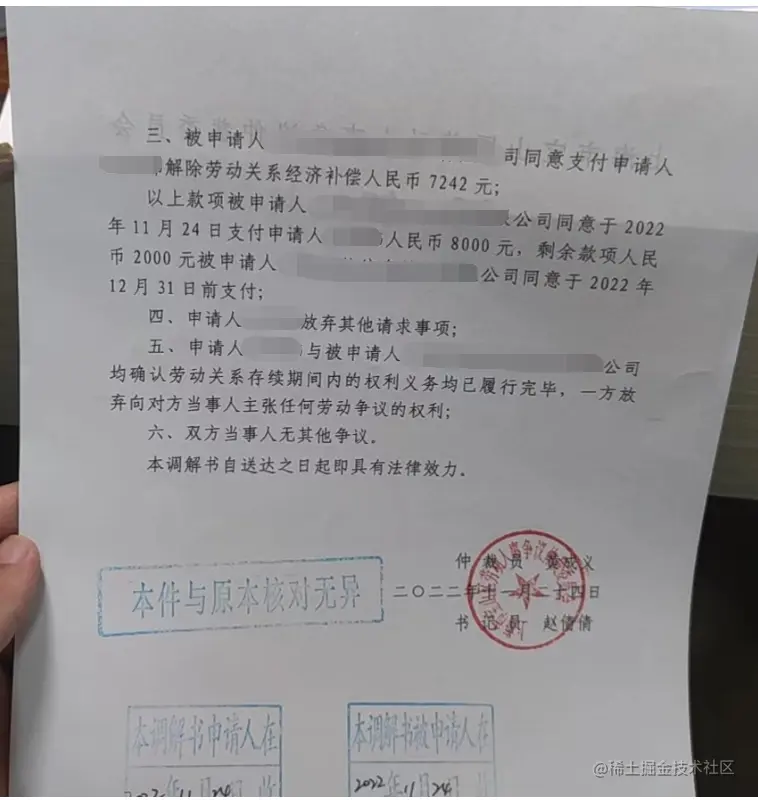 三、被申请人 司同意支付申请人
解除劳动关系经济补偿人民币 7242 元;
以上款项被申请人 公司同意于 2022
年 11 月 24 日支付申请人 人民币 8000 元, 剩余款项人民
币 2000 元被申请人 公司同意于 2022 年
12 月 31 日前支付;
四、申请人 放弃其他请求事项;
五、申请人 与被申请人 公司
均确认劳动关系存续期间内的权利义务均已履行完毕, 一方放
弃向对方当事人主张任何劳动争议的权利;
六、双方当事人无其他争议。
本调解书自送达之日起即具有法律效力。
仲 裁 员 黄成义
本件与原本核对无异
二〇二二年十一月二十四日
书 记 员 赵倩倩
本调解书申请人在
2022年11月24日
本调解书被申请人在
2022年11月24日
@稀土掘金技术社区